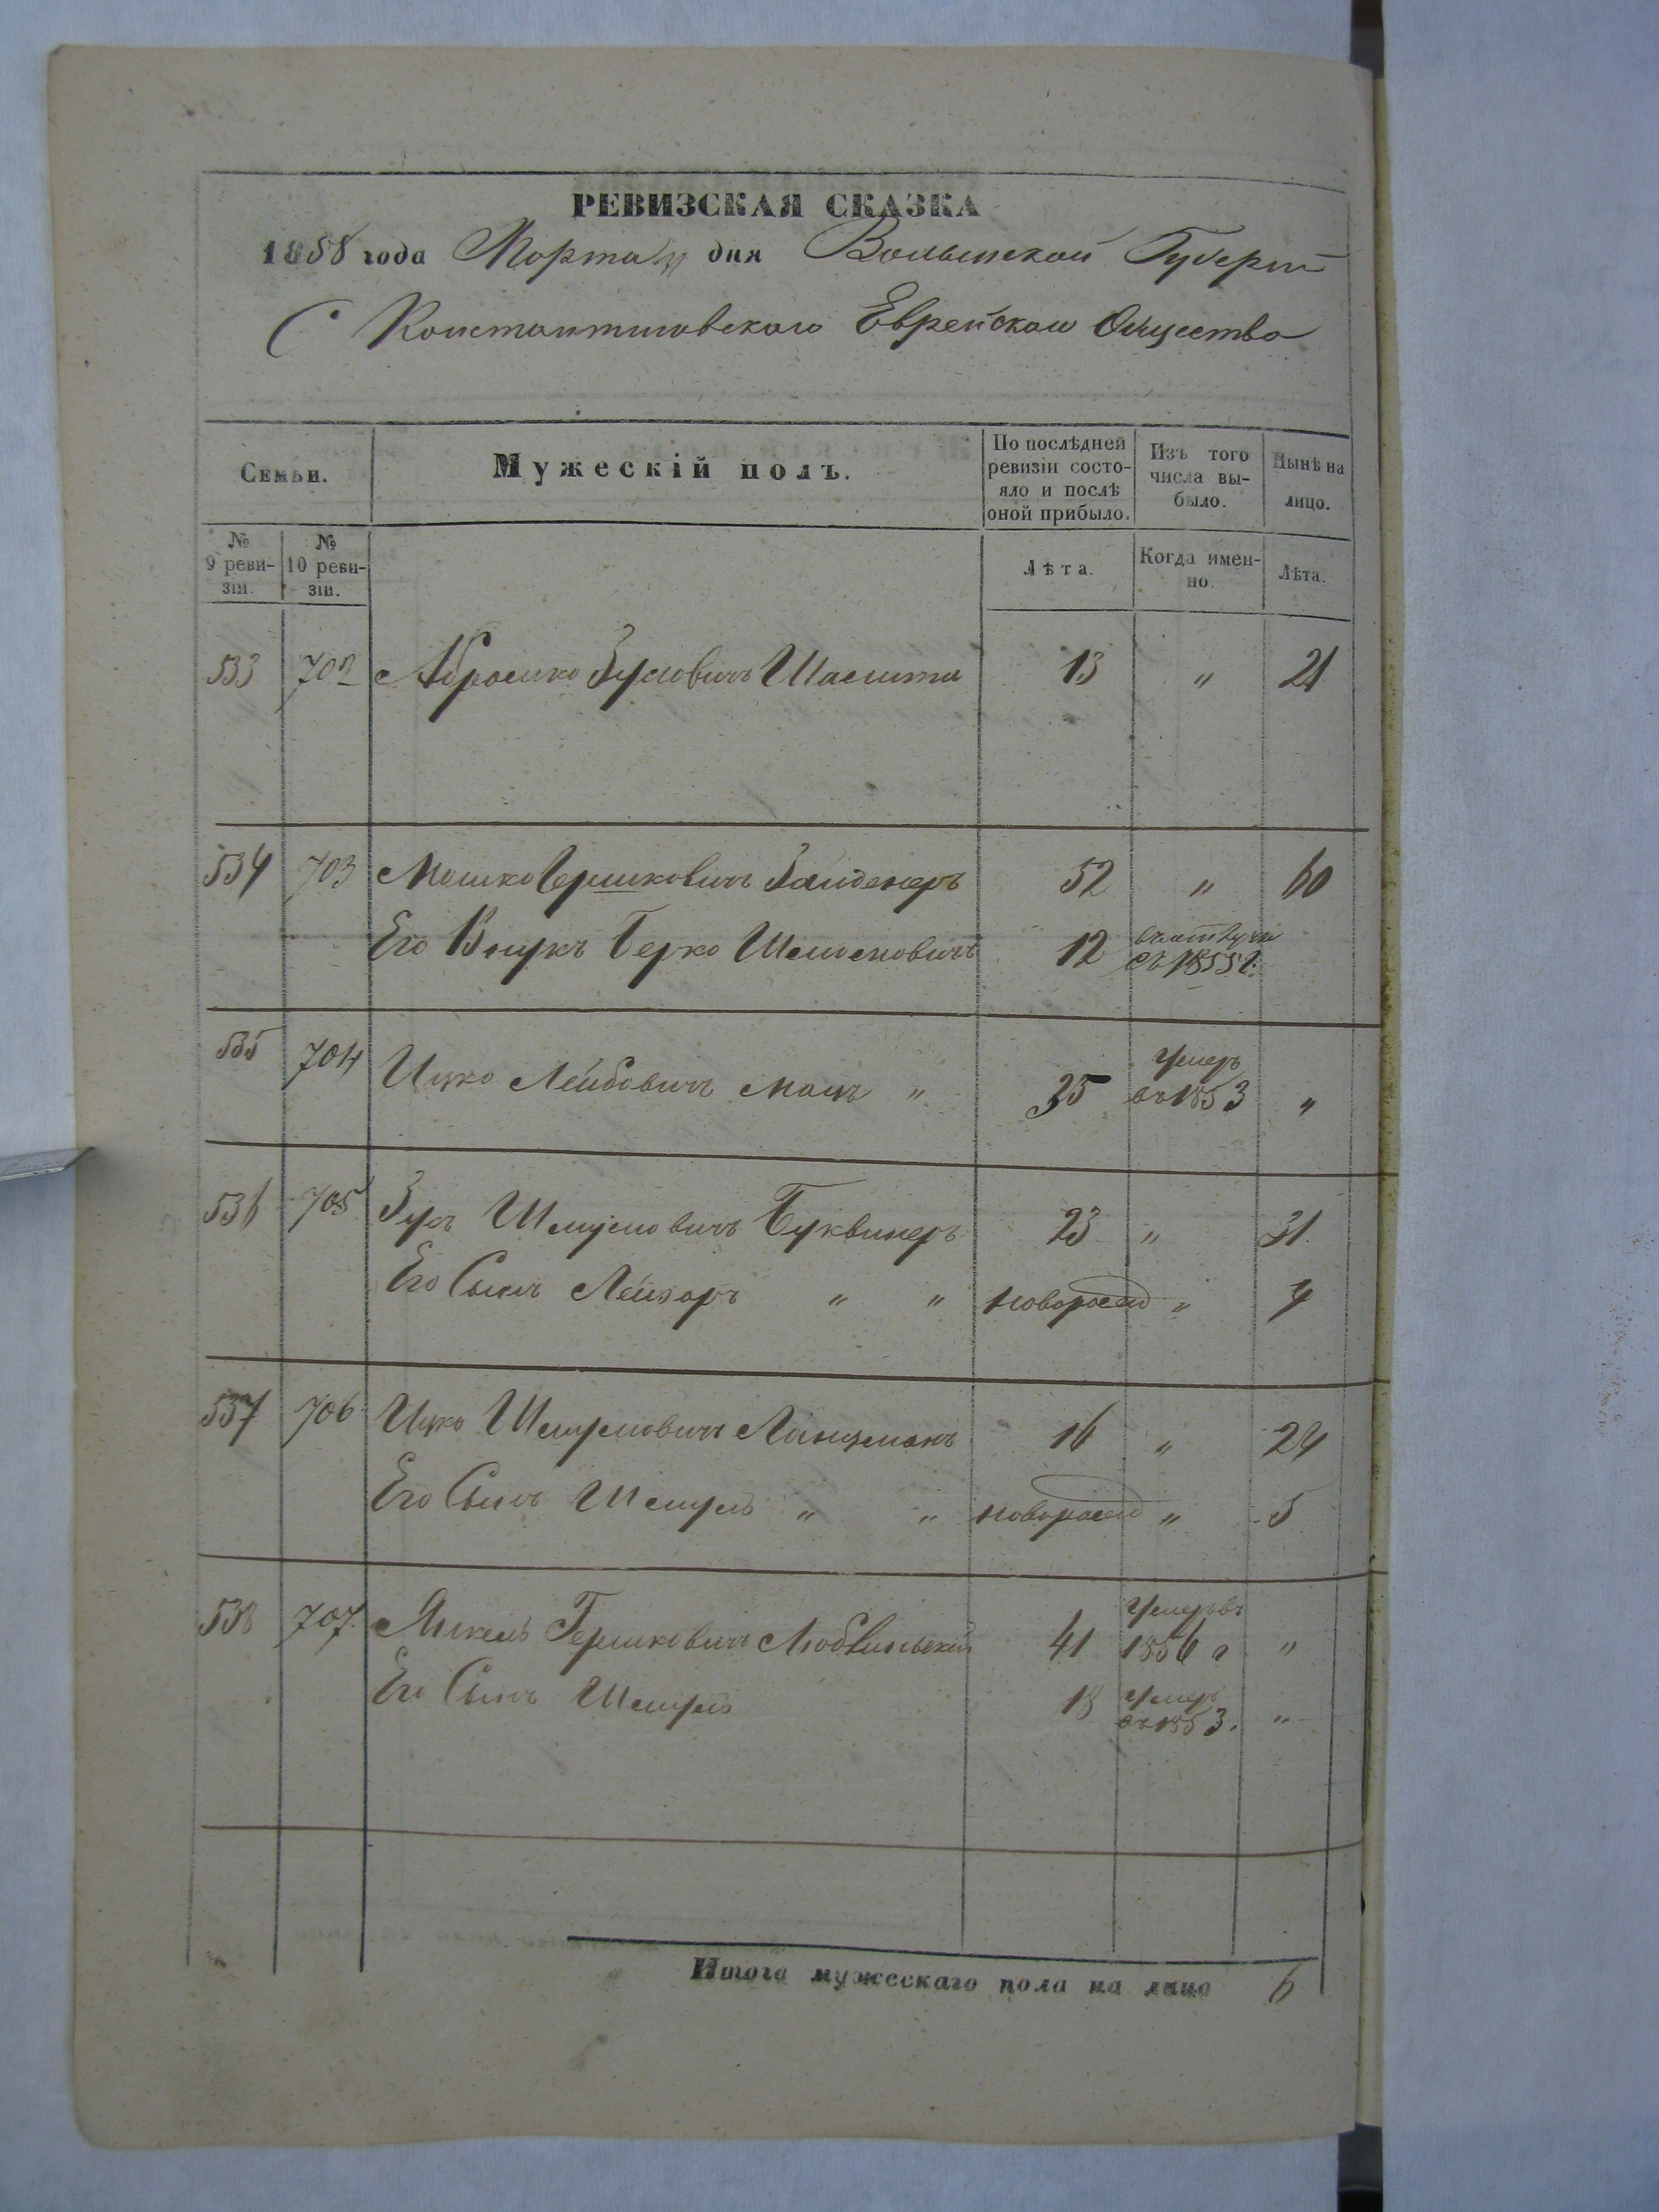 РЕВИЗСКАЯ СКАЗКА
1858 года Марта дня Волынской Губерніи
С Константиновскаго Еврейскаго Общества
Семьи.
Мужескій полъ.
По послѣдней ревизіи состо-
яло и послѣ
оной прибыло.
Изъ того
числа вы-
было.
Нынѣ на
лицо.
№
9 реви-
зіи.
№
10 реви-
зіи.
Лѣта.
Когда имен-
но.
Лѣта.
533 702 Абрамко Зусьовичъ 13 " 21
534 703 Мошко Гершковичъ Зайденеръ 52 " 60
Его Внукъ Берко Шлиомовичъ 12 съ 1855 г.
535 704 Ицко Лейбовичъ Мацъ " 35 умеръ въ 1853 "
536 705 Зусь Шмулиовичъ Буквинеръ 23 " 31
Его Сынъ Лейзоръ " " новорожд " 7
537 706 Ицко Шмулиовичъ Ланцманъ 16 " 24
Его Сынъ Шмуль " " новорожд " 5
538 707. Янкель Гершковичъ 41 Умеръ въ 1856 г "
Его Сынъ Шмуль 18 Умеръ въ 1853. "
Итого мужескаго пола на лицо 6